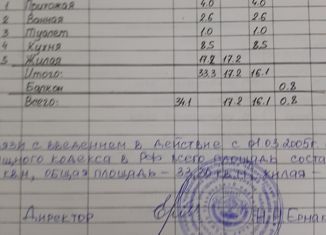 1 Прихожая 4.0 4.0
2 Ванная 2.6 2.6
3 Туалет 1.0 1.0
4 Кухня 8.5 8.5
5 Жилая 17.2 17.2
Итого: 33.3 17.2 16.1
Балкон 0.8
Всего: 34.1 17.2 16.1 0.8
язи с введением в действие с 01.03.2005г.
щного кодекса в РФ всего площадь соста
кв.м, общая площадь - 33,30 кв.м, жилая -
Директор Н.Н. Ермак